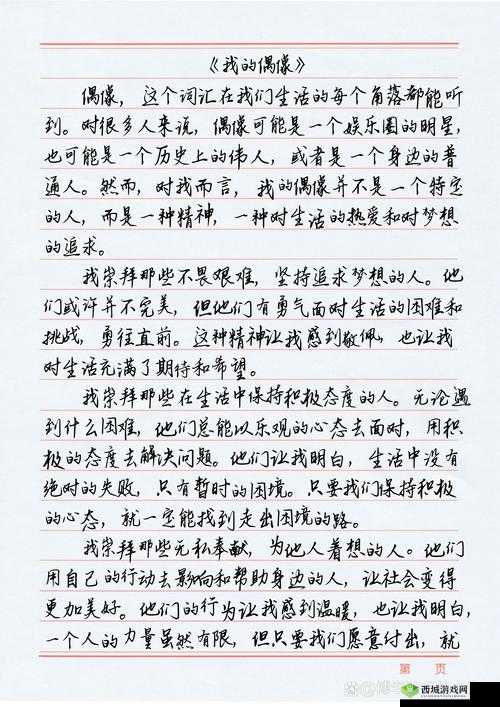 《我的偶像》
偶像，这个词汇在我们生活的每个角落都能听
到。对很多人来说，偶像可能是一个娱乐圈的明星，
也可能是一个历史上的伟人，或者是一个身边的普
通人。然而，对我而言，我的偶像并不是一个特定
的人，而是一种精神，一种对生活的热爱和对梦想
的追求。
我崇拜那些不畏艰难，坚持追求梦想的人。他
们或许并不完美，但他们有勇气面对生活的困难和
挑战，勇往直前。这种精神让我感到敬佩，也让我
对生活充满了期待和希望。
我崇拜那些在生活中保持积极态度的人。无论遇
到什么困难，他们总能以乐观的心态去面对，用积
极的态度去解决问题。他们让我明白，生活中没有
绝对的失败，只有暂时的困境。只要我们保持积极
的心态，就一定能找到走出困境的路。
我崇拜那些无私奉献，为他人着想的人。他们
用自己的行动去影响和帮助身边的人，让社会变得
更加美好。他们的行为让我感到温暖，也让我明白，
一个人的力量虽然有限，但只要我们愿意付出，就
第 页
西城游戏网